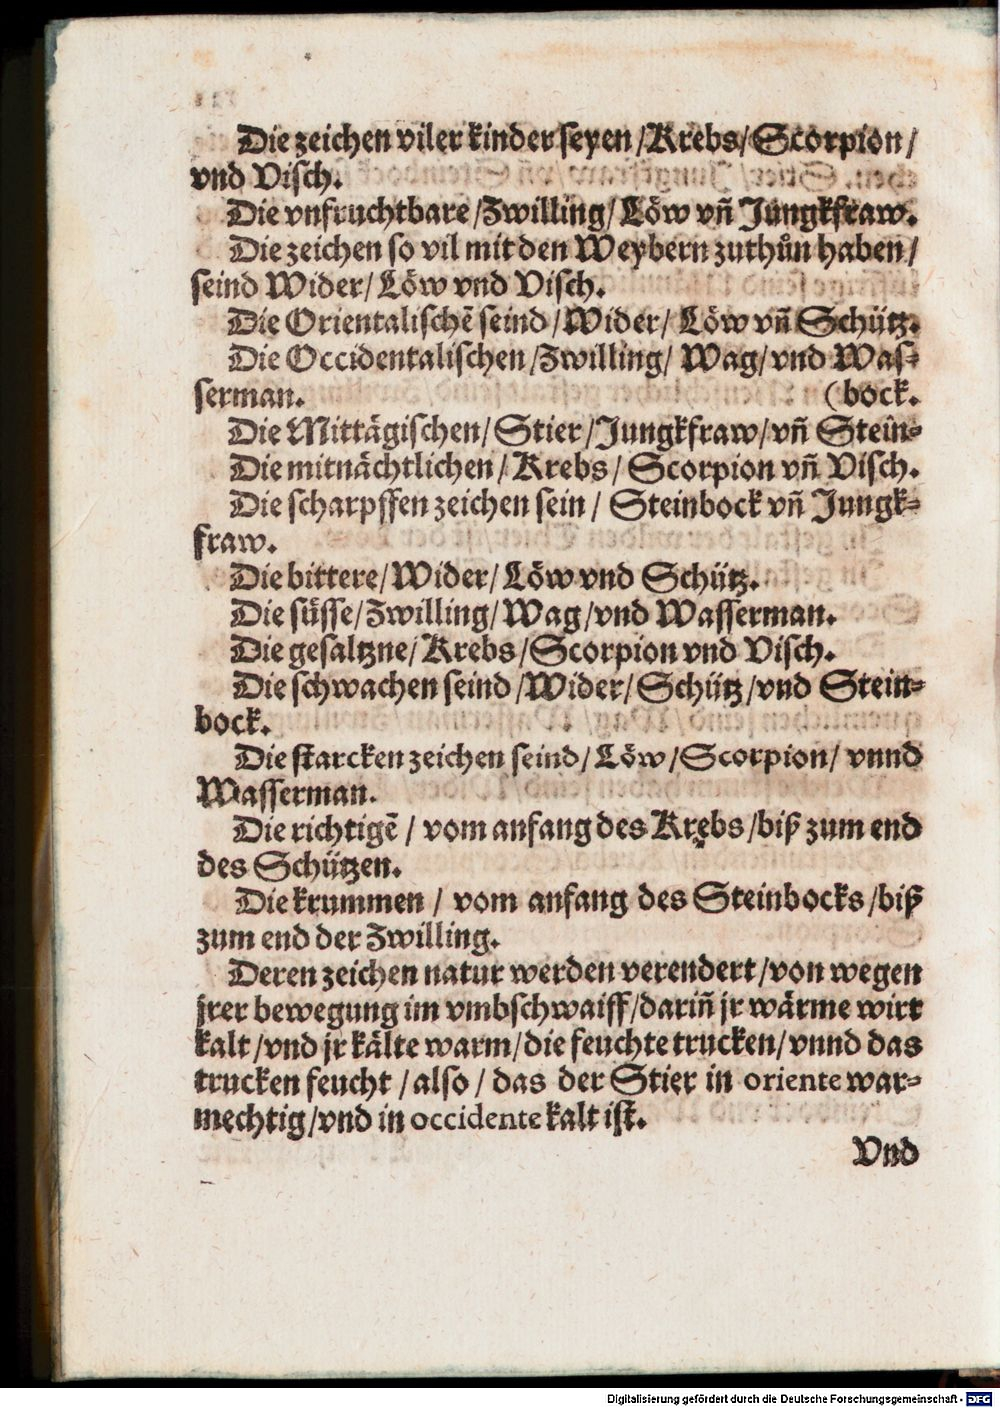 Die zeichen viler kinder seyen / Krebs / Scorpion /
vnd Visch.
Die vnfruchtbare / Zwilling / Löw vñ Jungkfraw.
Die zeichen so vil mit den Weybern zuthůn haben /
seind Wider / Löw vnd Visch.
Die Orientalischẽ seind / Wider / Löw vñ Schütz.
Die Occidentalischen / Zwilling / Wag / vnd Was⸗
serman. (bock.
Die Mittägischen / Stier / Jungkfraw / vñ Stein⸗
Die mitnächtlichen / Krebs / Scorpion vñ Visch.
Die scharpffen zeichen sein / Steinbock vñ Jungk⸗
fraw.
Die bittere / Wider / Löw vnd Schütz.
Die süsse / Zwilling / Wag / vnd Wasserman.
Die gesaltzne / Krebs / Scorpion vnd Visch.
Die schwachen seind / Wider / Schütz / vnd Stein⸗
bock.
Die starcken zeichen seind / Löw / Scorpion / vnnd
Wasserman.
Die richtigẽ / vom anfang des Krebs / biß zum end
des Schützen.
Die krummen / vom anfang des Steinbocks / biß
zum end der Zwilling.
Deren zeichen natur werden verendert / von wegen
jrer bewegung im vmbschwaiff / dariñ jr wärme wirt
kalt / vnd jr kälte warm / die feuchte trucken / vnnd das
trucken feucht / also / das der Stier in oriente war⸗
mechtig / vnd in occidente kalt ist.
Vnd
Digitalisierung gefördert durch die Deutsche Forschungsgemeinschaft - DFG